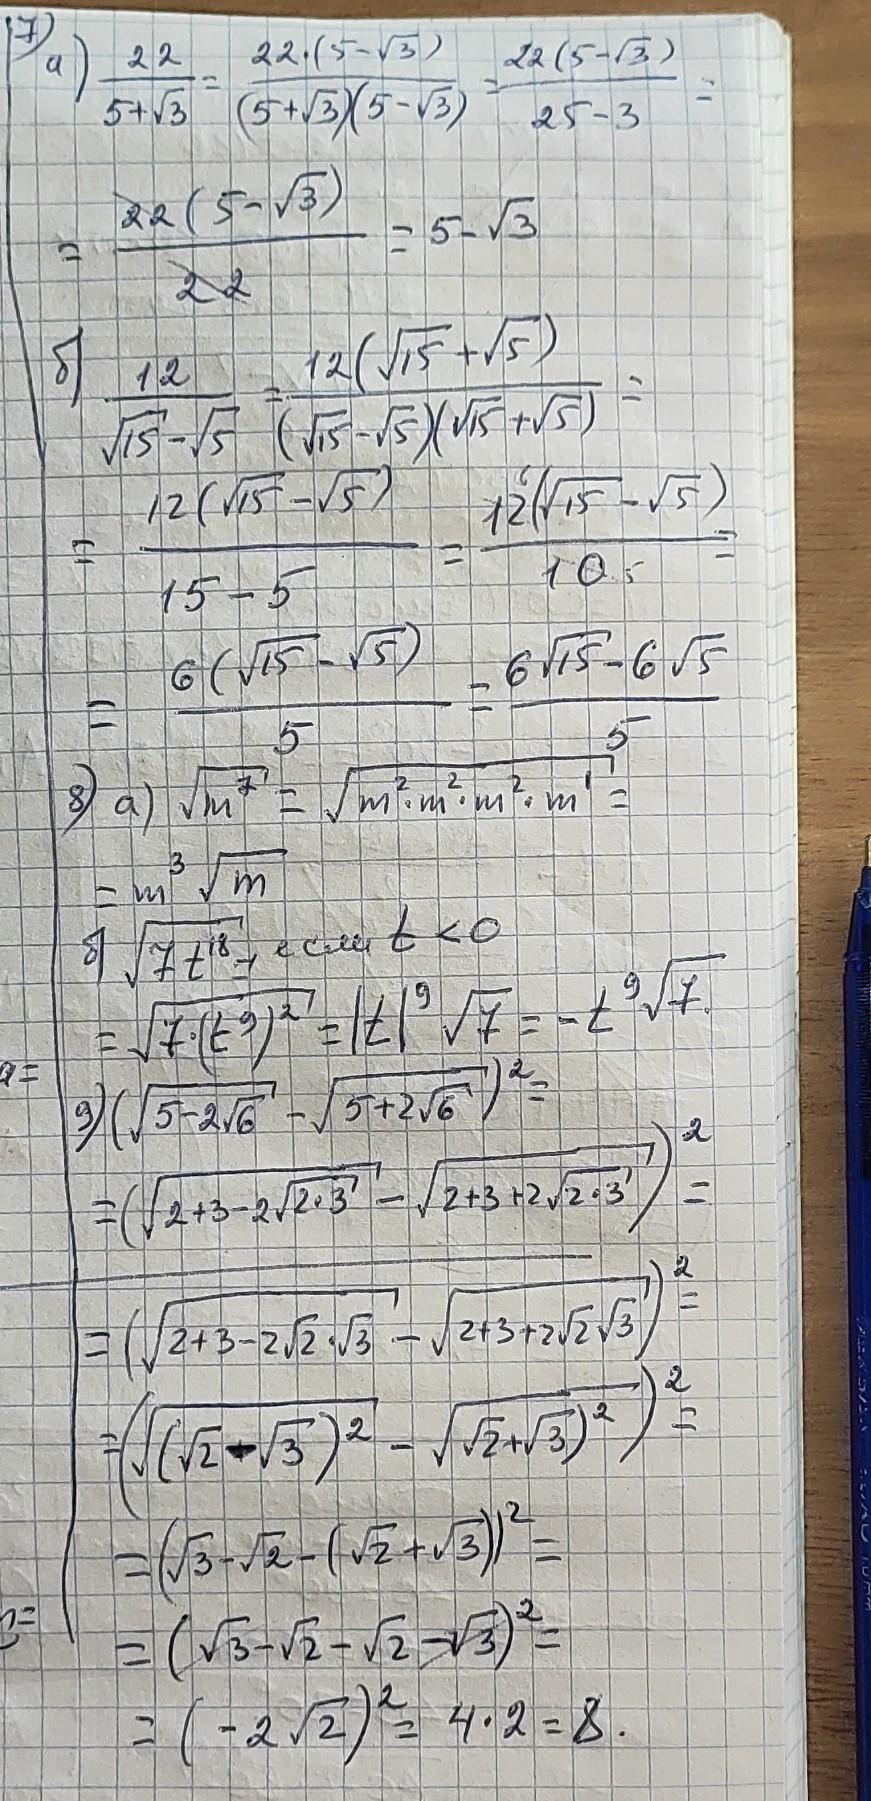 7)
а) 22/(5+√3) = 22·(5-√3)/((5+√3)(5-√3)) = 22(5-√3)/(25-3) =
= 22(5-√3)/22 = 5-√3
б) 12/(√15-√5) = 12(√15+√5)/((√15-√5)(√15+√5)) =
= 12(√15-√5)/(15-5) = 12⁶(√15-√5)/(10 5) =
= 6(√15-√5)/5 = (6√15-6√5)/5
8) а) √(m⁷) = √(m²·m²·m²·m¹) =
= m³√m
б) √(7t¹⁸), если t<0
= √(7·(t⁹)²) = |t|⁹√7 = -t⁹√7.
a=
9) (√(5-2√6) - √(5+2√6))² =
= (√(2+3-2√(2·3)) - √(2+3+2√(2·3)))² =
= (√(2+3-2√2·√3) - √(2+3+2√2√3))² =
= (√((√2-√3)²) - √(√2+√3)²)² =
= (√3-√2-(√2+√3))² =
= (√3-√2-√2-√3)² =
= (-2√2)² = 4·2 = 8.